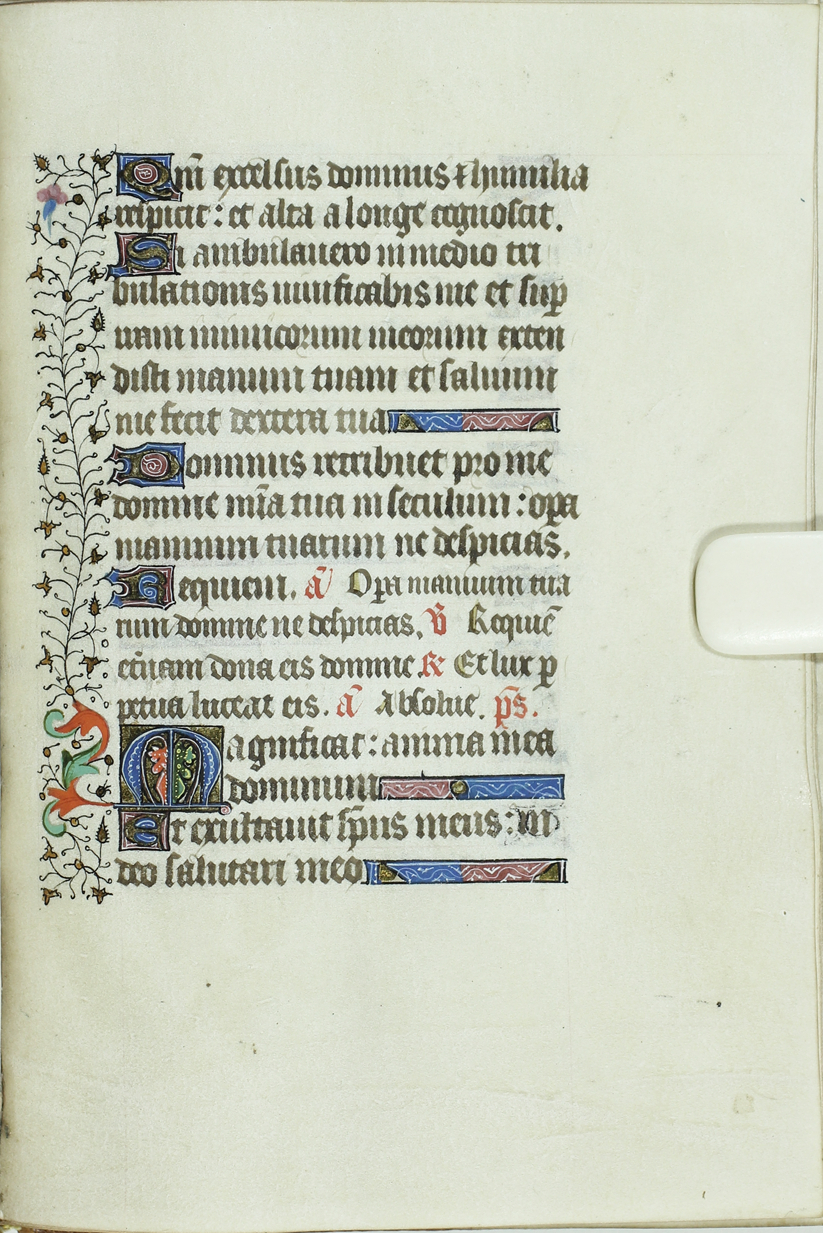 Qm̄ excelsus dominus ⁊ humilia
respicit : et alta a longe cognoscit.
Si ambulauero in medio tri
bulationis uiuificabis me et suꝑ
iram inimicorum meorum exten
disti manum tuam et saluum
me fecit dextera tua
Dominus retribuet pro me
domine mīa tua in seculum : oꝑa
manuum tuarum ne despicias.
Requiem. a᷃ Oꝑa manuum tua
rum domine ne despicias. v̄ Requiē
et̄nam dona eis domine ꝶ Et lux ꝑ
petua luceat eis. a᷃ Absolue. p̄s.
Magnificat : anima mea
dominum
Et exultauit sp̄us meus : in
deo salutari meo